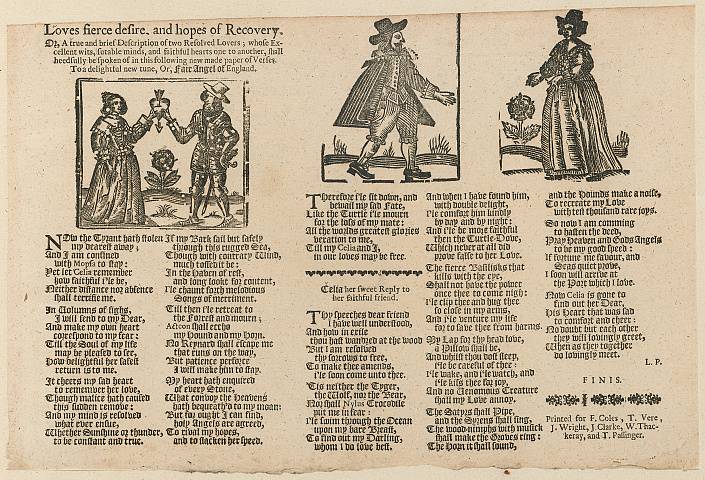 Loves fierce desire, and hopes of Recovery.
Or, A true and brief Description of two Resolved Lovers; whose Ex-
cellent wits, sutable minds, and faithful hearts one to another, shall
heedfully be spoken of in this following new made paper of Verses.
To a delightful new tune, Or, Fair Angel of England.
NOw the Tyrant hath stolen
my dearest away;
And I am confined
with Mopsa to stay:
Yet let Celia remember
how faithful I'le be,
Neither distance nor absence
shall terrifie me.
In Columns of sighs,
I will send to my Dear,
And make my own heart
correspond to my fear:
Till the Soul of my life
may be pleased to see,
How delightful her safest
return is to me.
It cheers my sad heart
to remember her love,
Though malice hath caused
this sudden remove:
And my mind is resolved
what ever ensue,
Whether Sunshine or thunder,
to be constant and true.
If my Bark sail but safely
through this rugged Sea,
Though with contrary Wind,
much tossed it be:
In the Haven of rest,
and long lookt for content,
I'le chaunt forth melodious
Songs of merriment.
Till then I'le retreat to
the Forrest and mourn;
Acteon shall eccho
my Hound and my Horn.
No Reynard shall escape me
that runs on the way,
But patience perforce
I will make him to stay.
My heart hath enquired
of every Stone,
What convoy the Heavens
hath bequeath'd to my moan:
But for ought I can find,
holy Angels are agreed,
To rival my hopes,
and to slacken her speed.
Therefore I'le sit down, and
bewail my sad Fate,
Like the Turtle I'le mourn
for the loss of my mate:
All the worlds greatest glories
vexation to me,
Till my Celia and I,
in our loves may be free.
Celia her sweet Reply to
her faithful friend.
Thy speeches dear friend
I have well understood,
And how in exile
thou hast wandred at the wood
But I am resolved
thy sorrow to free,
To make thee amends,
I'le soon come unto thee.
Tis neither the Tyger,
the Wolf, nor the Bear,
Nor shall Nylus Crocodile
put me in fear:
I'le swim through the Ocean
upon my bare Breast,
To find out my Darling,
whom I do love best.
And when I have found him,
with double delight,
I'le comfort him kindly
by day and by night:
And I'le be more faithful
then the Turtle-Dove,
Which never at all did
prove false to her Love.
The fierce Basilisks that
kills with the eye,
Shall not have the power
once thee to come nigh:
I'le clip thee and hug thee
so close in my arms,
And I'le venture my life
for to save thee from harms.
My Lap for thy head love,
a Pillow shall be,
And whilst thou dost sleep,
I'le be careful of thee:
I'le wake, and I'le watch, and
I'le kiss thee for joy,
And no Venomous Creature
shall my Love annoy.
The Satyrs shall Pipe,
and the Syrens shall sing,
The wood-nymphs with musick
shall make the Groves ring:
The Horn it shall sound,
and the Hounds make a noise,
To recreate my Love
with ten thousand rare joys.
So now I am comming
to hasten the deed,
Pray Heaven and Gods Angels
to be my good speed:
If fortune me favour, and
Seas quiet prove,
I soon will arrive at
the Port which I love.
Now Celia is gone to
find out her Dear,
His Heart that was sad
to comfort and cheer:
No doubt but each other
they will lovingly greet,
When as they together
do lovingly meet.
L. P.
FINIS.
Printed for F. Coles, T. Vere,
J. Wright, J. Clarke, W. Thac-
keray, and T. Passinger.